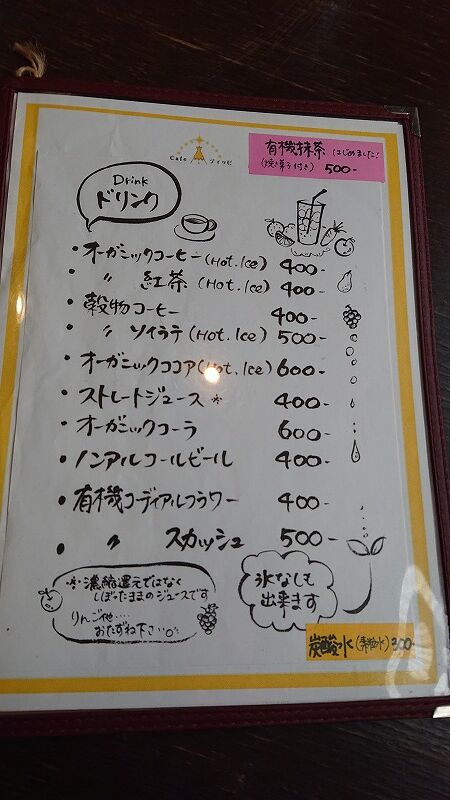 有機抹茶 はじめました!
(焼き菓子付き) 500-
Cafe ソイラビ
Drink
ドリンク
・オーガニックコーヒー(Hot.Ice) 400-
・〃 紅茶 (Hot.Ice) 400-
・穀物コーヒー 400-
・〃 ソイラテ(Hot.Ice) 500-
・オーガニックココア(Hot.Ice) 600-
・ストレートジュース※ 400-
・オーガニックコーラ 600-
・ノンアルコールビール 400-
・有機コーディアルフラワー 400-
・〃 スカッシュ 500-
※濃縮還元ではなく
しぼったままのジュースです
りんご他・・・・
おたずね下さい
氷なしも
出来ます
炭酸水 300-